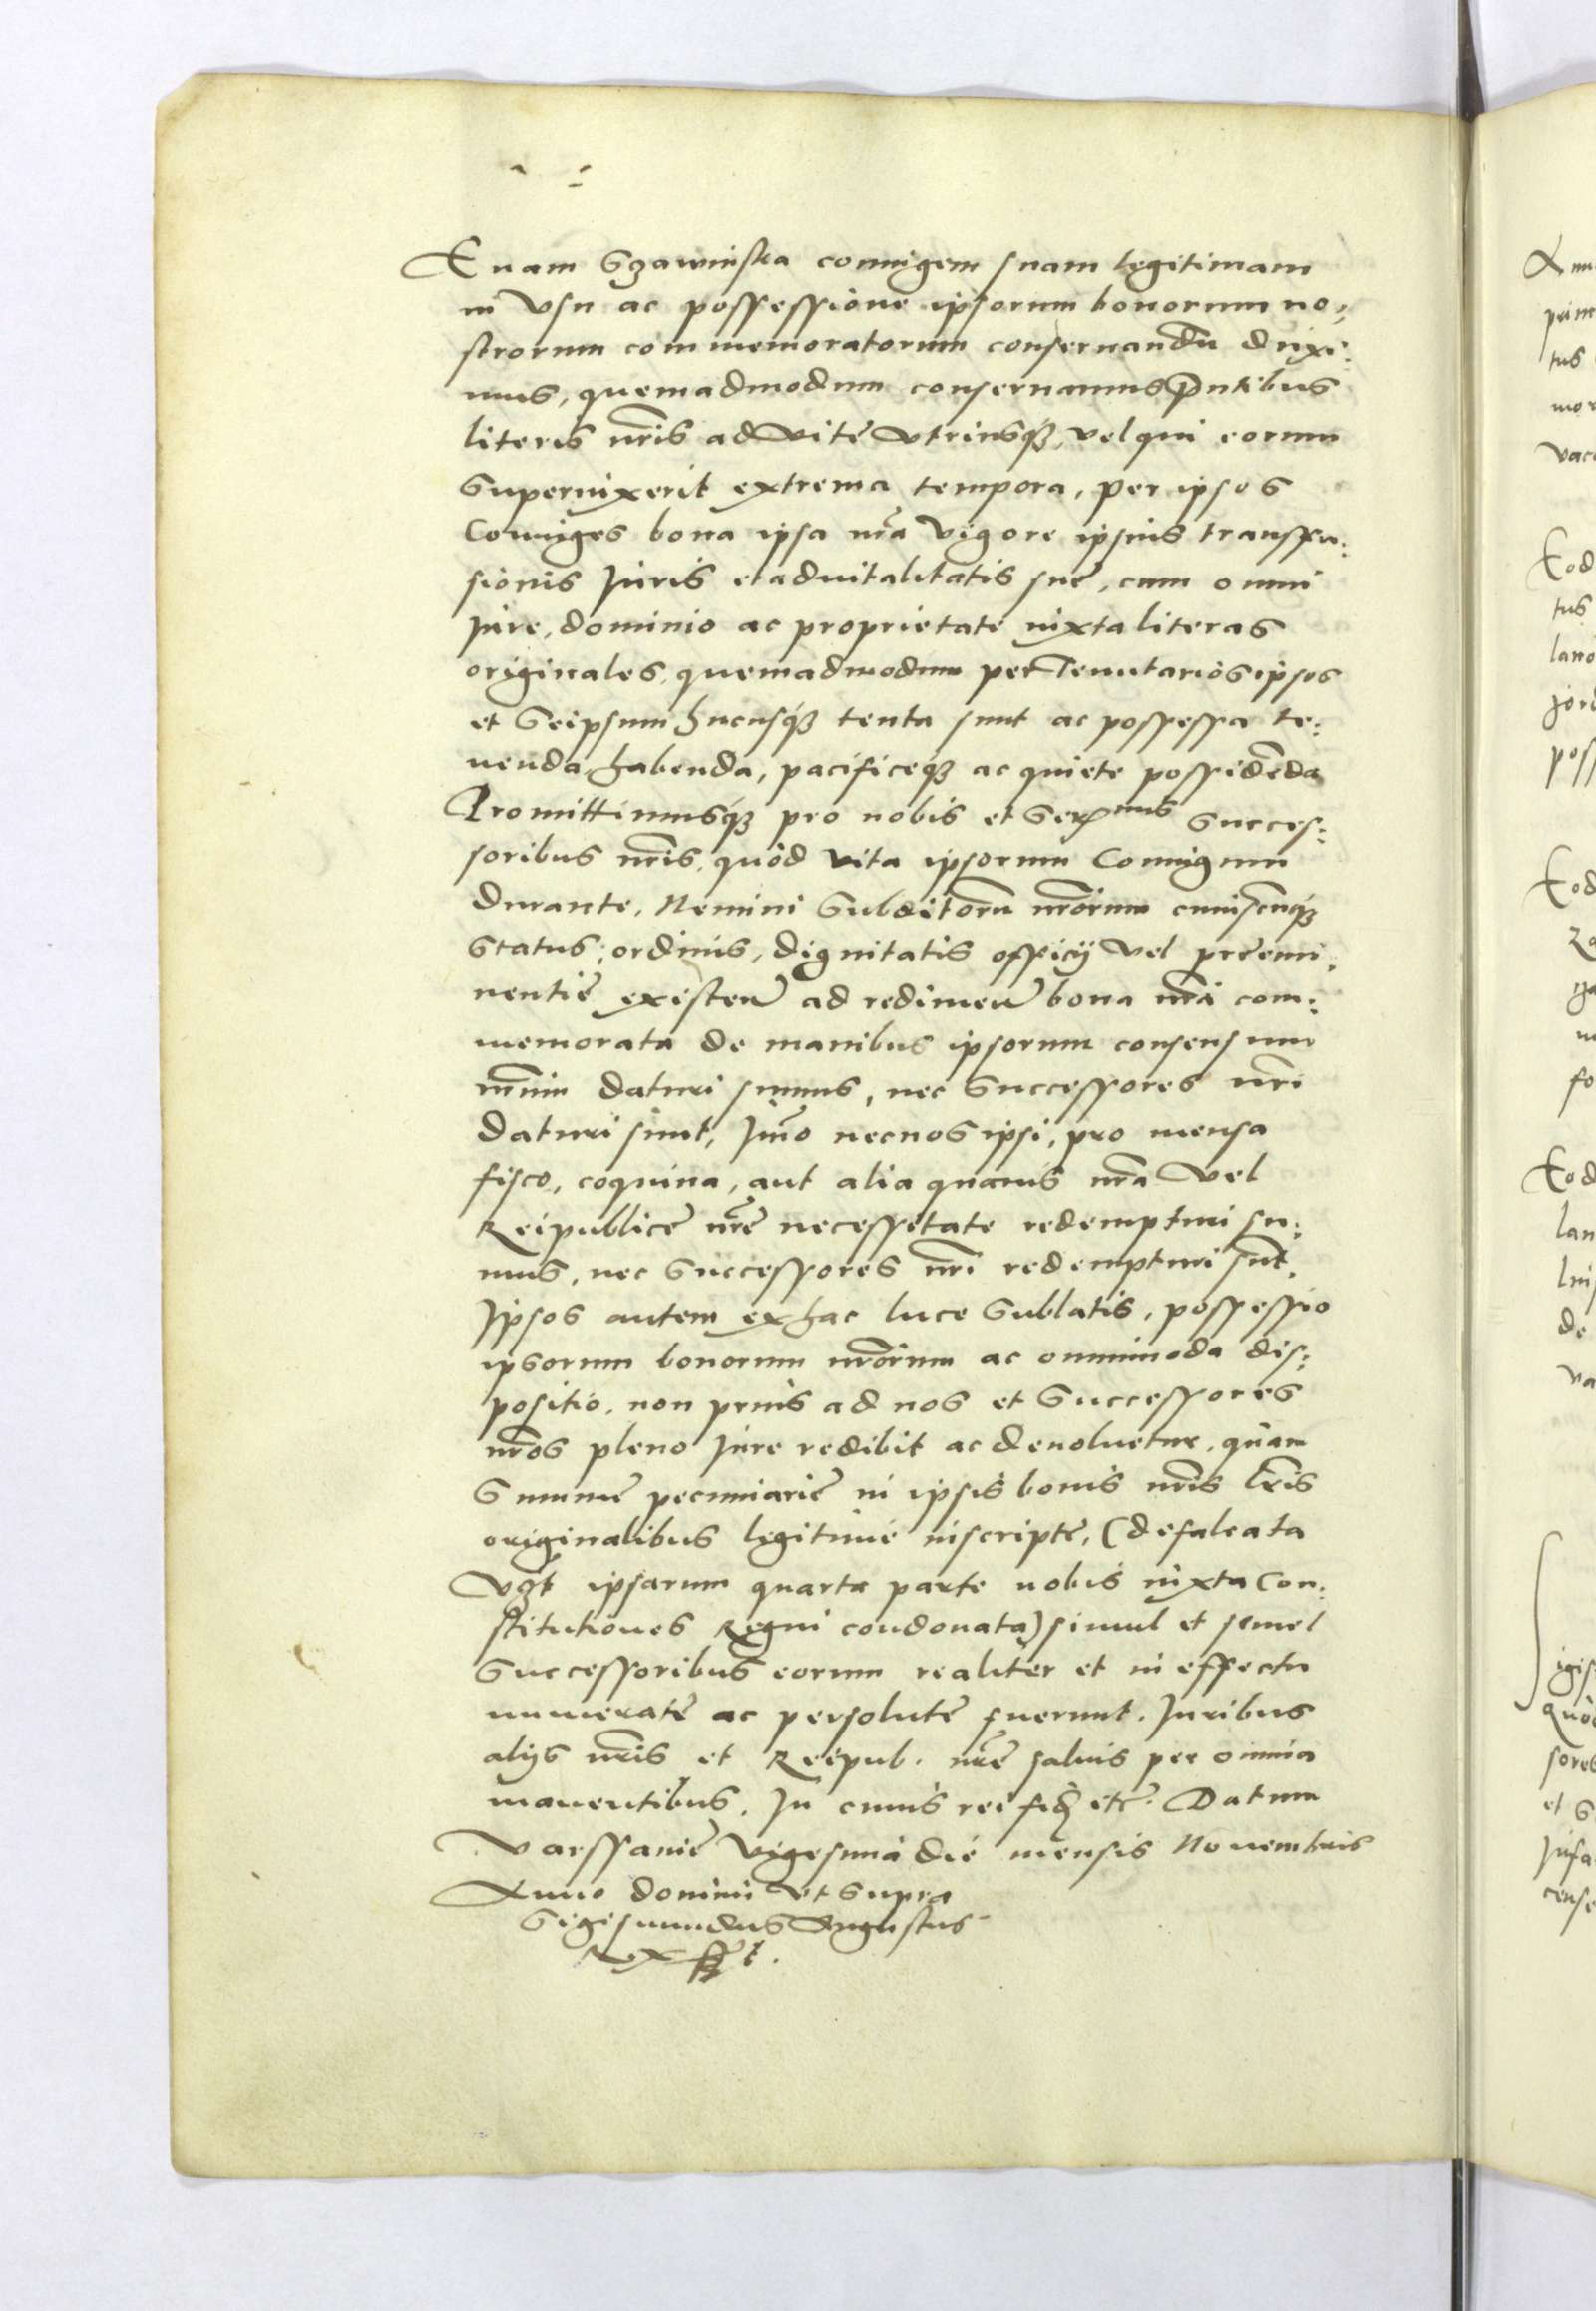 Euam Szawinska coniugem suam legitimam
in vsu ac possessione ipsorum bonorum no:
strorum commemoratorum conseruandū duxi:
mus, quemadmodum conseruamus p̄ntibus
literis nr̄is ad vitę vtriusq₃, vel qui eorum
superuixerit extrema tempora, per ipsos
Coniuges bona ipsa nr̄a vigore ipsius transfu:
sionis Iuris et aduitalitatis suę, cum omni
Iure, dominio ac proprietate iuxta literas
originales, quemadmodum per Tenutarios ipsos
et Seipsum hucusq₃ tenta sunt ac possessa te:
nenda, habenda, pacificeq₃ ac quiete possidēda
Promittimusq₃ pro nobis et Ser^mis Succes:
soribus nr̄is, quòd vita ipsorum Coniugum
durante, Nemini Subditorū nr̄orum cuiuscūq₃
status, ordinis, dignitatis officij vel preemi:
nentię existen̄ ad redimen̄ bona nr̄a com:
memorata de manibus ipsorum consensum
nr̄um daturi sumus, nec Successores nr̄i
daturi sint, Imò nec nos ipsi, pro mensa
fisco, coquina, aut alia quauis nr̄a vel
Reipublicę nr̄ę necessitate redempturi su:
mus, nec Successores nr̄i redempturi sūt,
Ipsos autem ex hac luce Sublatis, possessio
ipsorum bonorum nr̄orum ac omnimoda dis:
positio, non prius ad nos et Successores
nr̄os pleno Iure redibit ac deuoluetur, quàm
Summę pecuniarię in ipsis bonis nr̄is lr̄is
originalibus legitimè inscriptę, (defalcata
vz̄t ipsarum quarta parte nobis iuxta Con:
stitutiones Regni condonata) simul et semel
Successoribus eorum realiter et in effectu
numeratę ac persolutę fuerunt. Iuribus
alijs nr̄is et Reipub. nr̄ę saluis per omnia
manentibus, In cuius rei fid₃ etc̄. Datum
Varssauię vigesima die mensis Nouembris
Anno domini vt supra
Sigismundus Augustus
Rex sszt.